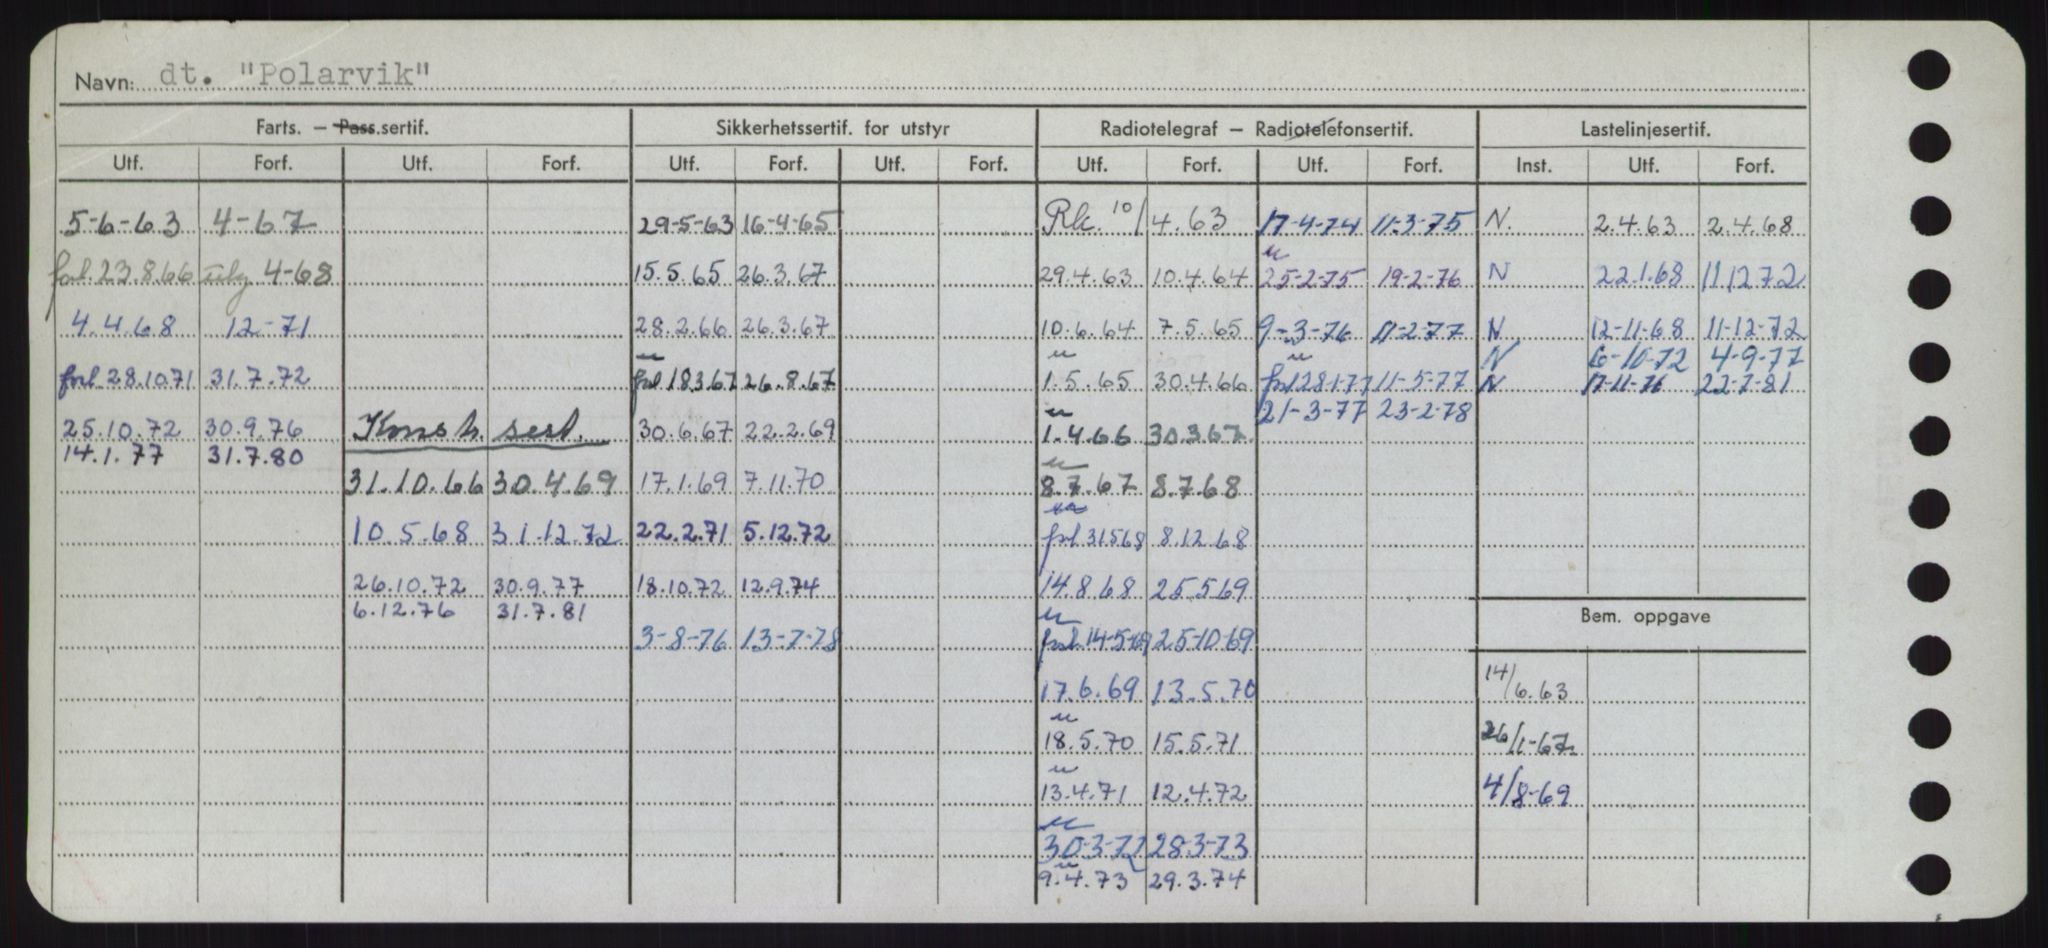 Navn: dt. "Polarvik"
Farts. — Pass.sertif. Sikkerhetssertif. for utstyr Radiotelegraf — Radiotelefonsertif. Lastelinjesertif.
Utf. Forf. Utf. Forf. Utf. Forf. Utf. Forf. Utf. Forf. Utf. Forf. Inst. Utf. Forf.
5-6-63 4-67 29-5-63 16-4-65 Rk. 10/4.63 17-4-74 11-3-75 N. 2.4.63 2.4.68
forl. 23.8.66 4-68 15.5.65 26.3.67 29.4.63 10.4.64 25-2-75 19-2-76 N 22.1.68 11 12 72
4.4.68 12-71 28.2.66 26.3.67 10.6.64 7.5.65 9-3-76 11-2-77 N 12-11-68 11-12-72
N 6-10-72 4-9-77
forl 28.10.71 31.7.72 forl 18367 26.8.67 1.5.65 30.4.66 forl 28-1-77 11-5-77 N 17-11-76 22-7-81
21-3-77 23-2-78
25.10.72 30.9.76 Konstr. sert. 30.6.67 22.2.69 1.4.66 30.3.67
14.1.77 31.7.80
31.10.66 30.4.69 17.1.69 7.11.70 8.7.67 8.7.68
10.5.68 31.12.72 22.2.71 5.12.72 forl 31568 8.12.68
26.10.72 30.9.77 18.10.72 12.9.74 14.8.68 25569
6.12.76 31.7.81
Bem. oppgave
3-8-76 13-7-78 forl. 14-5-69 25-10-69
14/6.63
17.6.69 13.5.70
18.5.70 15.5.71 26/1-67
13.4.71 12.4.72 4/8-69
30-3-72 28-3-73
9.4.73 29.3.74